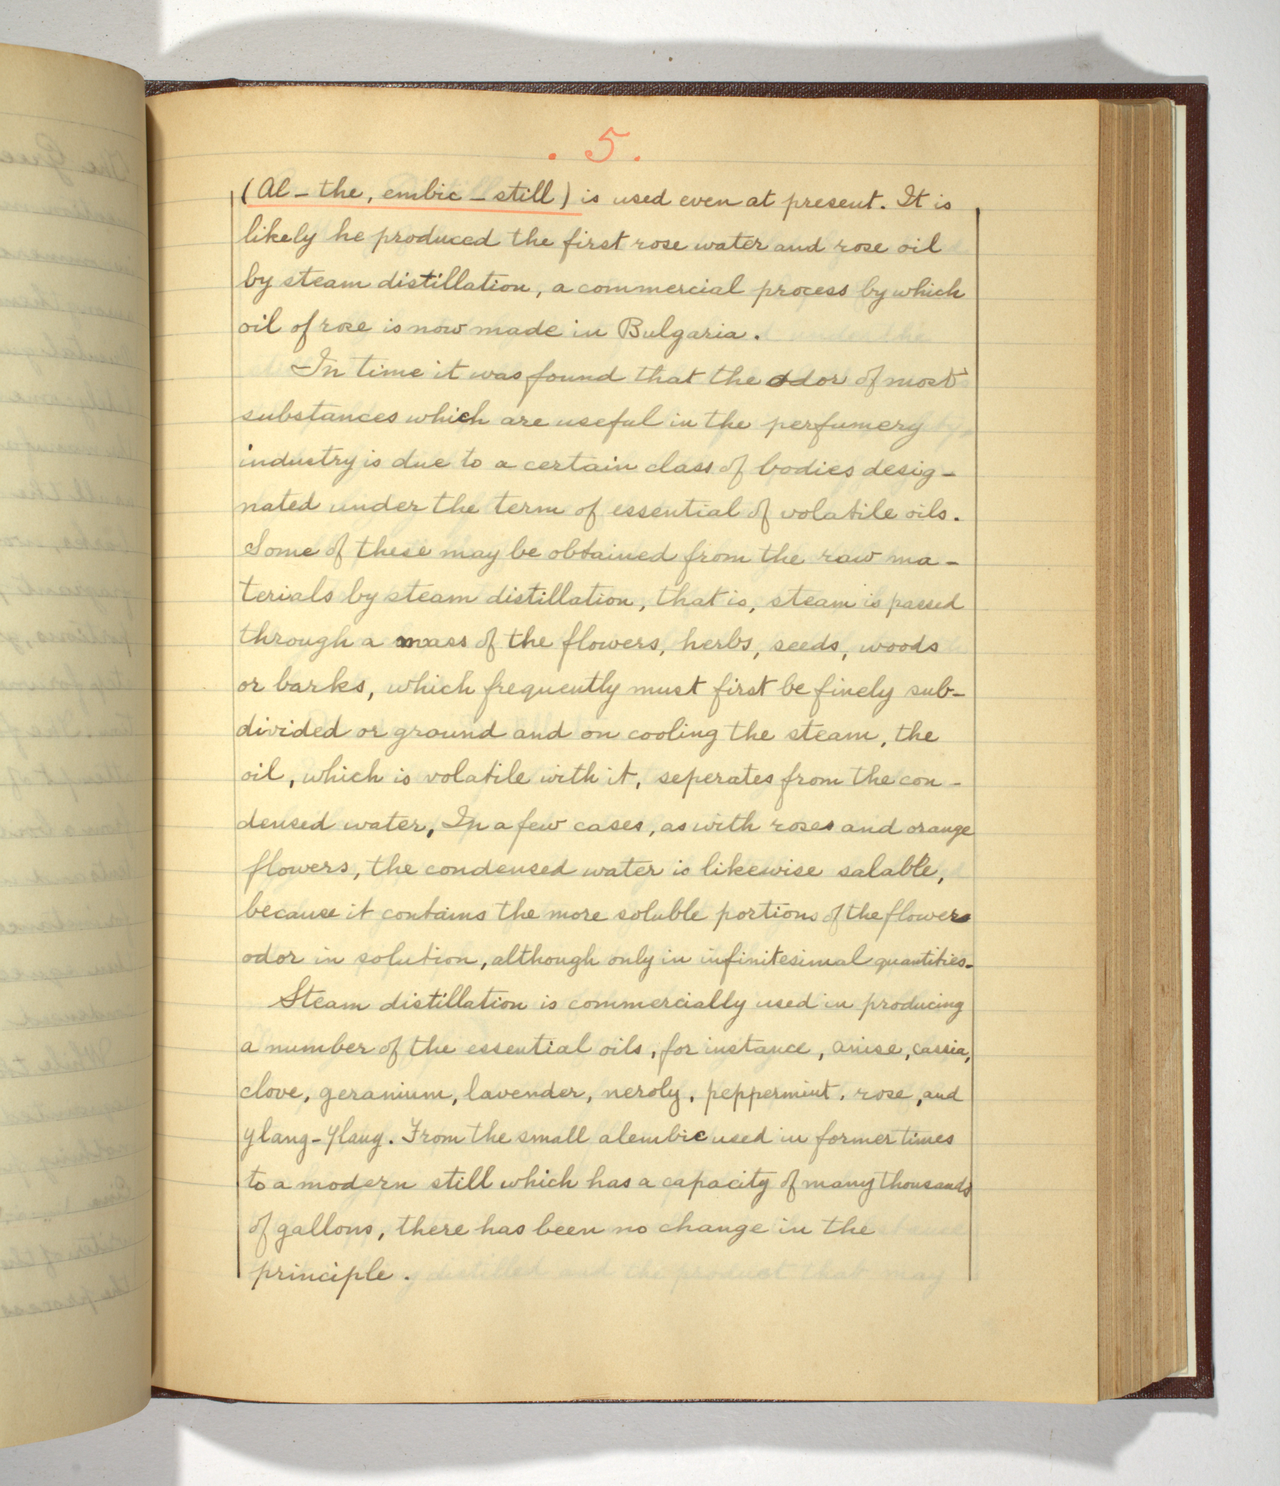 . 5.
(Al - the, embic - still) is used even at present. It is
likely he produced the first rose water and rose oil
by steam distillation, a commercial process by which
oil of rose is now made in Bulgaria.
In time it was found that the odor of most
substances which are useful in the perfumery
industry is due to a certain class of bodies desig-
nated under the term of essential of volatile oils.
Some of these may be obtained from the raw ma-
terials by steam distillation, that is, steam is passed
through a mass of the flowers, herbs, seeds, woods
or barks, which frequently must first be finely sub-
divided or ground and on cooling the steam, the
oil, which is volatile with it, seperates from the con-
densed water, In a few cases, as with roses and orange
flowers, the condensed water is likewise salable,
because it contains the more soluble portions of the flowers
odor in solution, although only in infinitesimal quantities.
Steam distillation is commercially used in producing
a number of the essential oils, for instance, anise, cassia,
clove, geranium, lavender, neroly, peppermint, rose, and
ylang-Ylang. From the small alembic used in former times
to a modern still which has a capacity of many thousands
of gallons, there has been no change in the
principle.